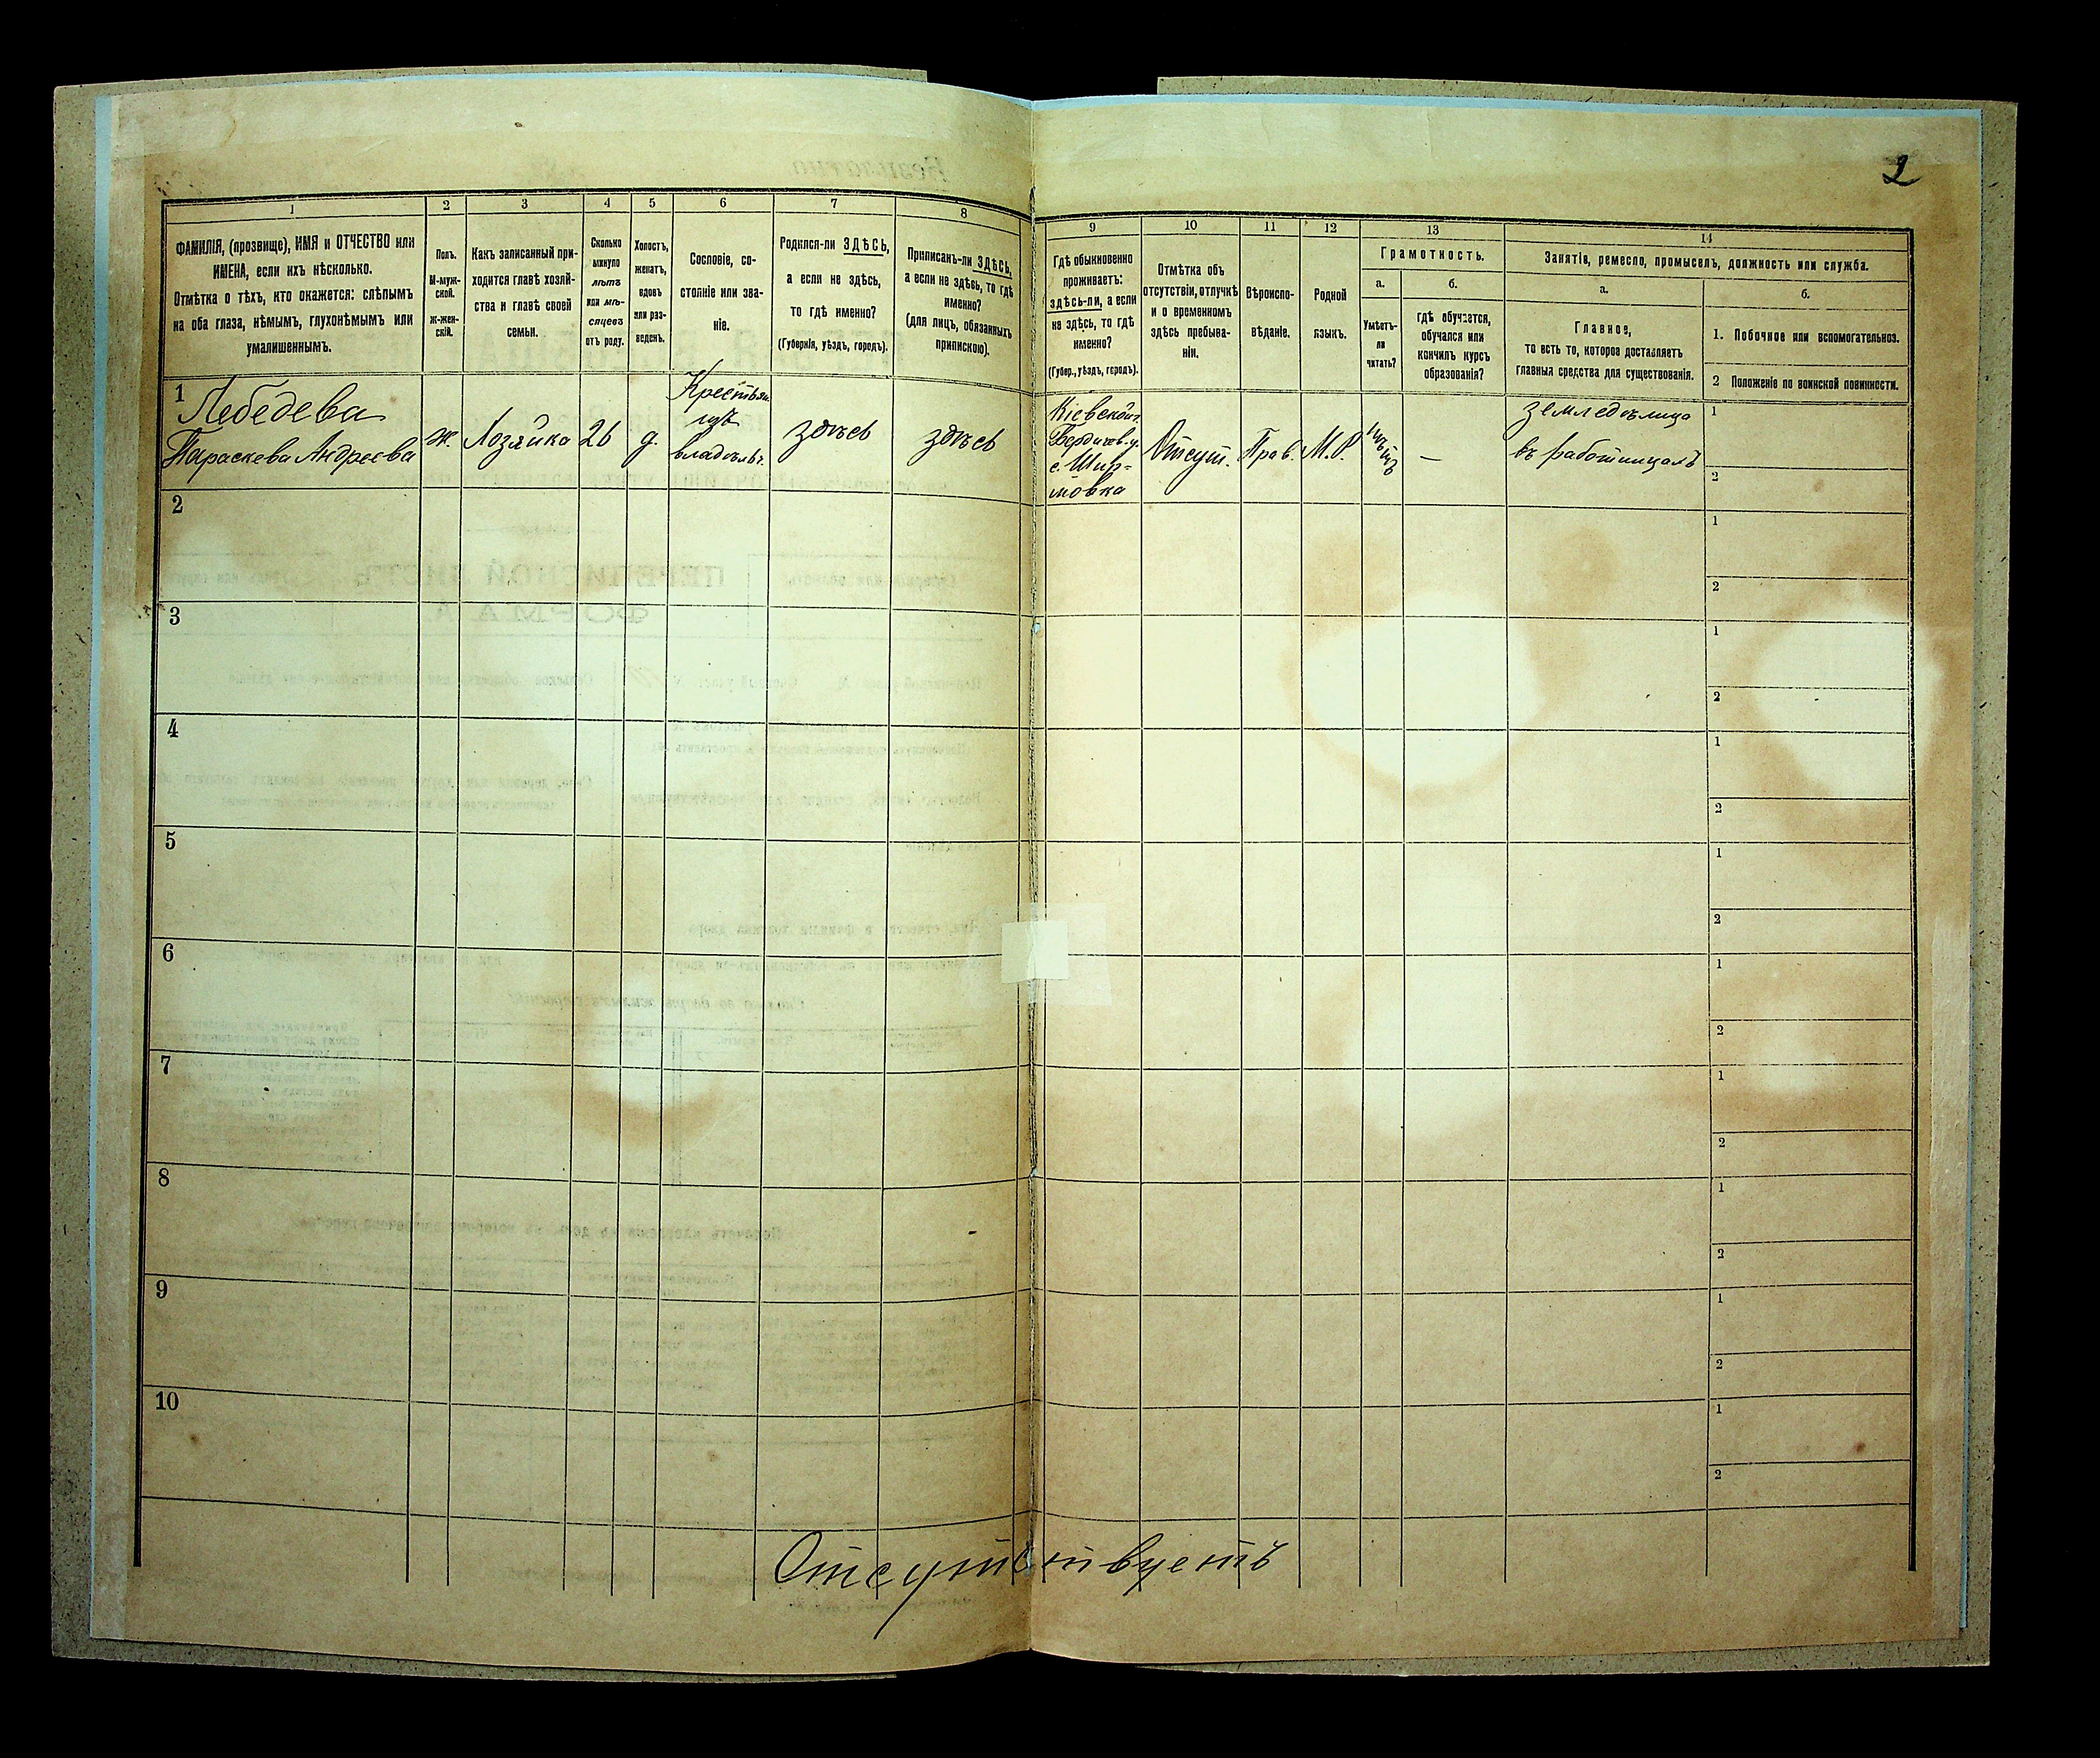 2
1
2
3
4
5
6
7
8
9
10
11
12
13
14
ФАМИЛІЯ, (прозвище), ИМЯ и ОТЧЕСТВО или
ИМЕНА, если ихъ нѣсколько.
Отмѣтка о тѣхъ, кто окажется: слѣпымъ
на оба глаза, нѣмымъ, глухонѣмымъ или
умалишеннымъ.
Полъ.
М-муж-
ской.
ж-жен-
скій.
Какъ записанный при-
ходится главѣ хозяй-
ства и главѣ своей
семьи.
Сколько
минуло
лѣтъ
или мѣ-
сяцевъ
отъ роду.
Холостъ,
женатъ,
вдовъ
или раз-
веденъ.
Сословіе, со-
стояніе или зва-
ніе.
Родился-ли ЗДѢСЬ,
а если не здѣсь,
то гдѣ именно?
(Губернія, уѣздъ, городъ).
Приписанъ-ли ЗДѢСЬ,
а если не здѣсь, то гдѣ
именно?
(для лицъ, обязанныхъ
припискою).
Гдѣ обыкновенно
проживаетъ:
здѣсь-ли, а если
не здѣсь, то гдѣ
именно?
(Губер., уѣздъ, городъ).
Отмѣтка объ
отсутствіи, отлучкѣ
и о временномъ
здѣсь пребыва-
ніи.
Вѣроиспо-
вѣданіе.
Родной
языкъ.
Грамотность.
а.
Умѣетъ-
ли
читать?
б.
гдѣ обучается,
обучался или
кончилъ курсъ
образованія?
Занятіе, ремесло, промыселъ, должность или служба.
а.
Главное,
то есть то, которое доставляетъ
главныя средства для существованія.
б.
1. Побочное или вспомогательное.
2 Положеніе по воинской повинности.
1
Лебедева
Параскева Андреева
ж.
Хозяйка
26
д.
Крестьян.
изъ
владѣльч.
здѣсь
здѣсь
Кіевской г.
Бердичев. у.
с. Шир-
мовка
Отсут.
Прав.
М.Р.
нѣтъ
—
земледѣлица
въ работницахъ
1
2
2
1
2
3
1
2
4
1
2
5
1
2
6
1
2
7
1
2
8
1
2
9
1
2
10
1
2
Отсутствуетъ